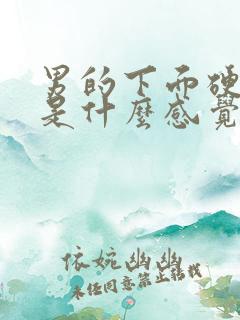 男的下面硬
是什麼感覺
依婉幽幽
未经同意禁止转载